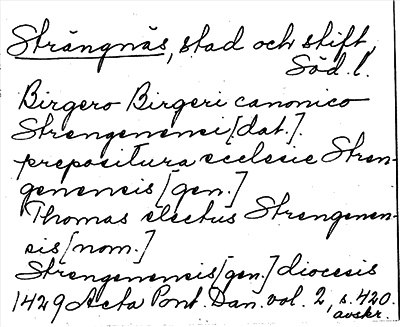 Strängnäs, stad och stift,
Söd. l.
Birgero Birgeri canonico
Strengenensi [dat.].
prepositura ecclesie Stren-
genensis [gen.]
Thomas electus Strengenen-
sis [nom.]
Strengenensis [gen.] diocesis
1429 Acta Pont. Dan. vol. 2, s. 420.
avskr.